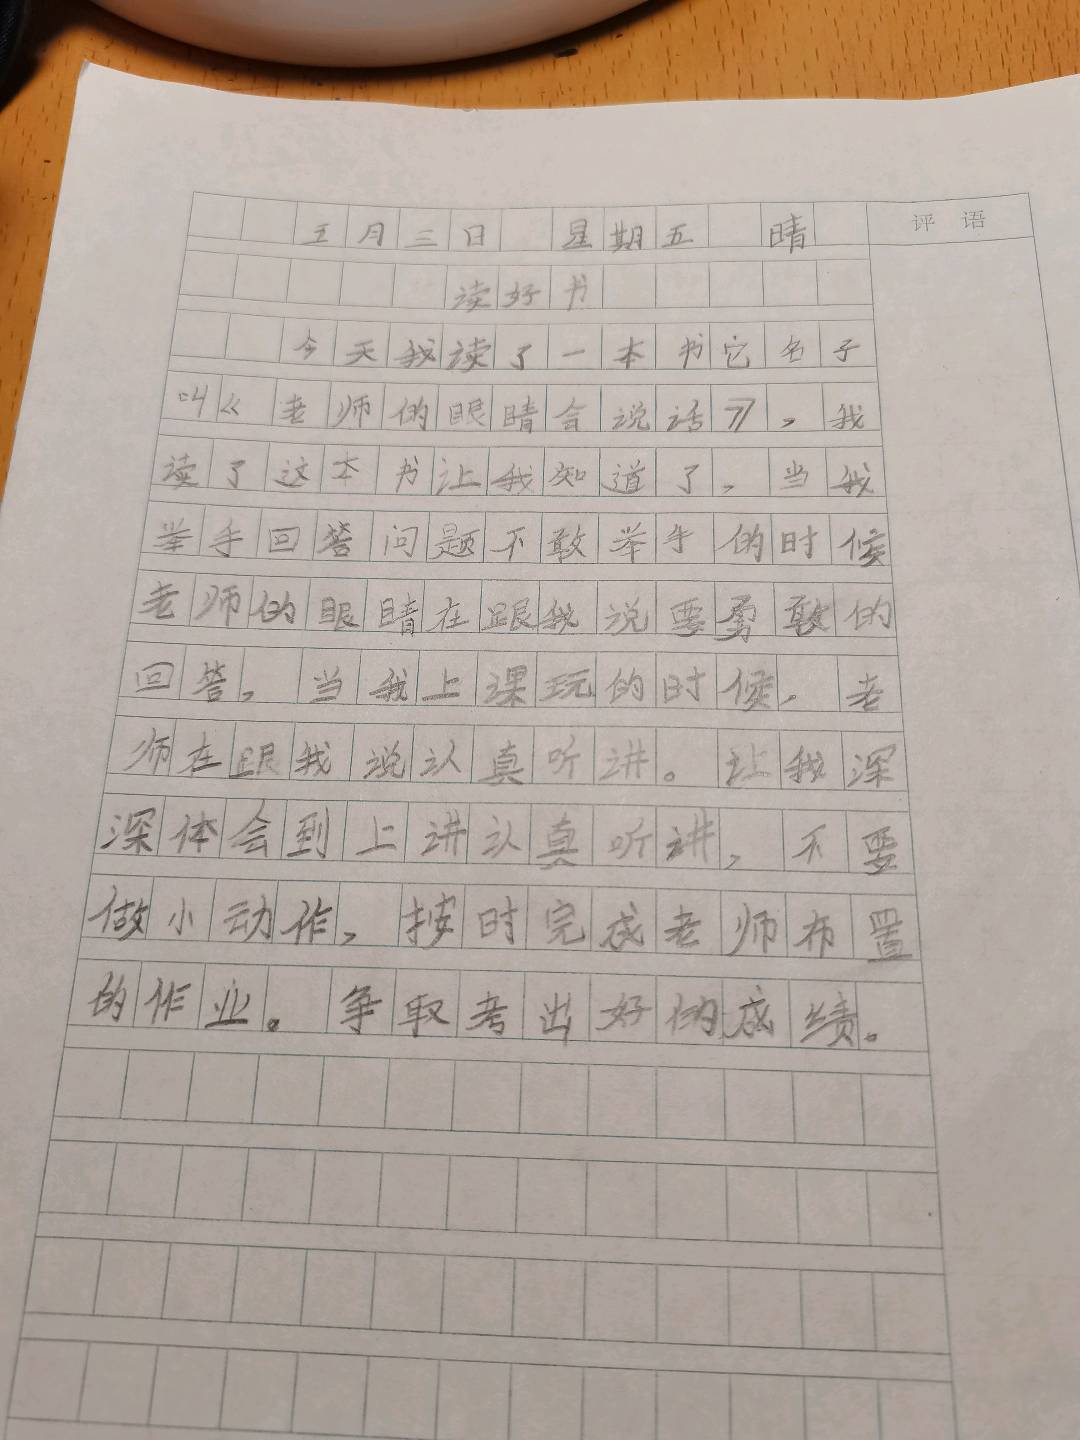 五月三日 星期五 晴 评语
读好书
今天我读了一本书它名子
叫《老师的眼睛会说话》，我
读了这本书让我知道了，当我
举手回答问题不敢举手的时候
老师的眼睛在跟我说要勇敢的
回答，当我上课玩的时候，老
师在跟我说认真听讲。让我深
深体会到上讲认真听讲，不要
做小动作，按时完成老师布置
的作业。争取考出好的成绩。